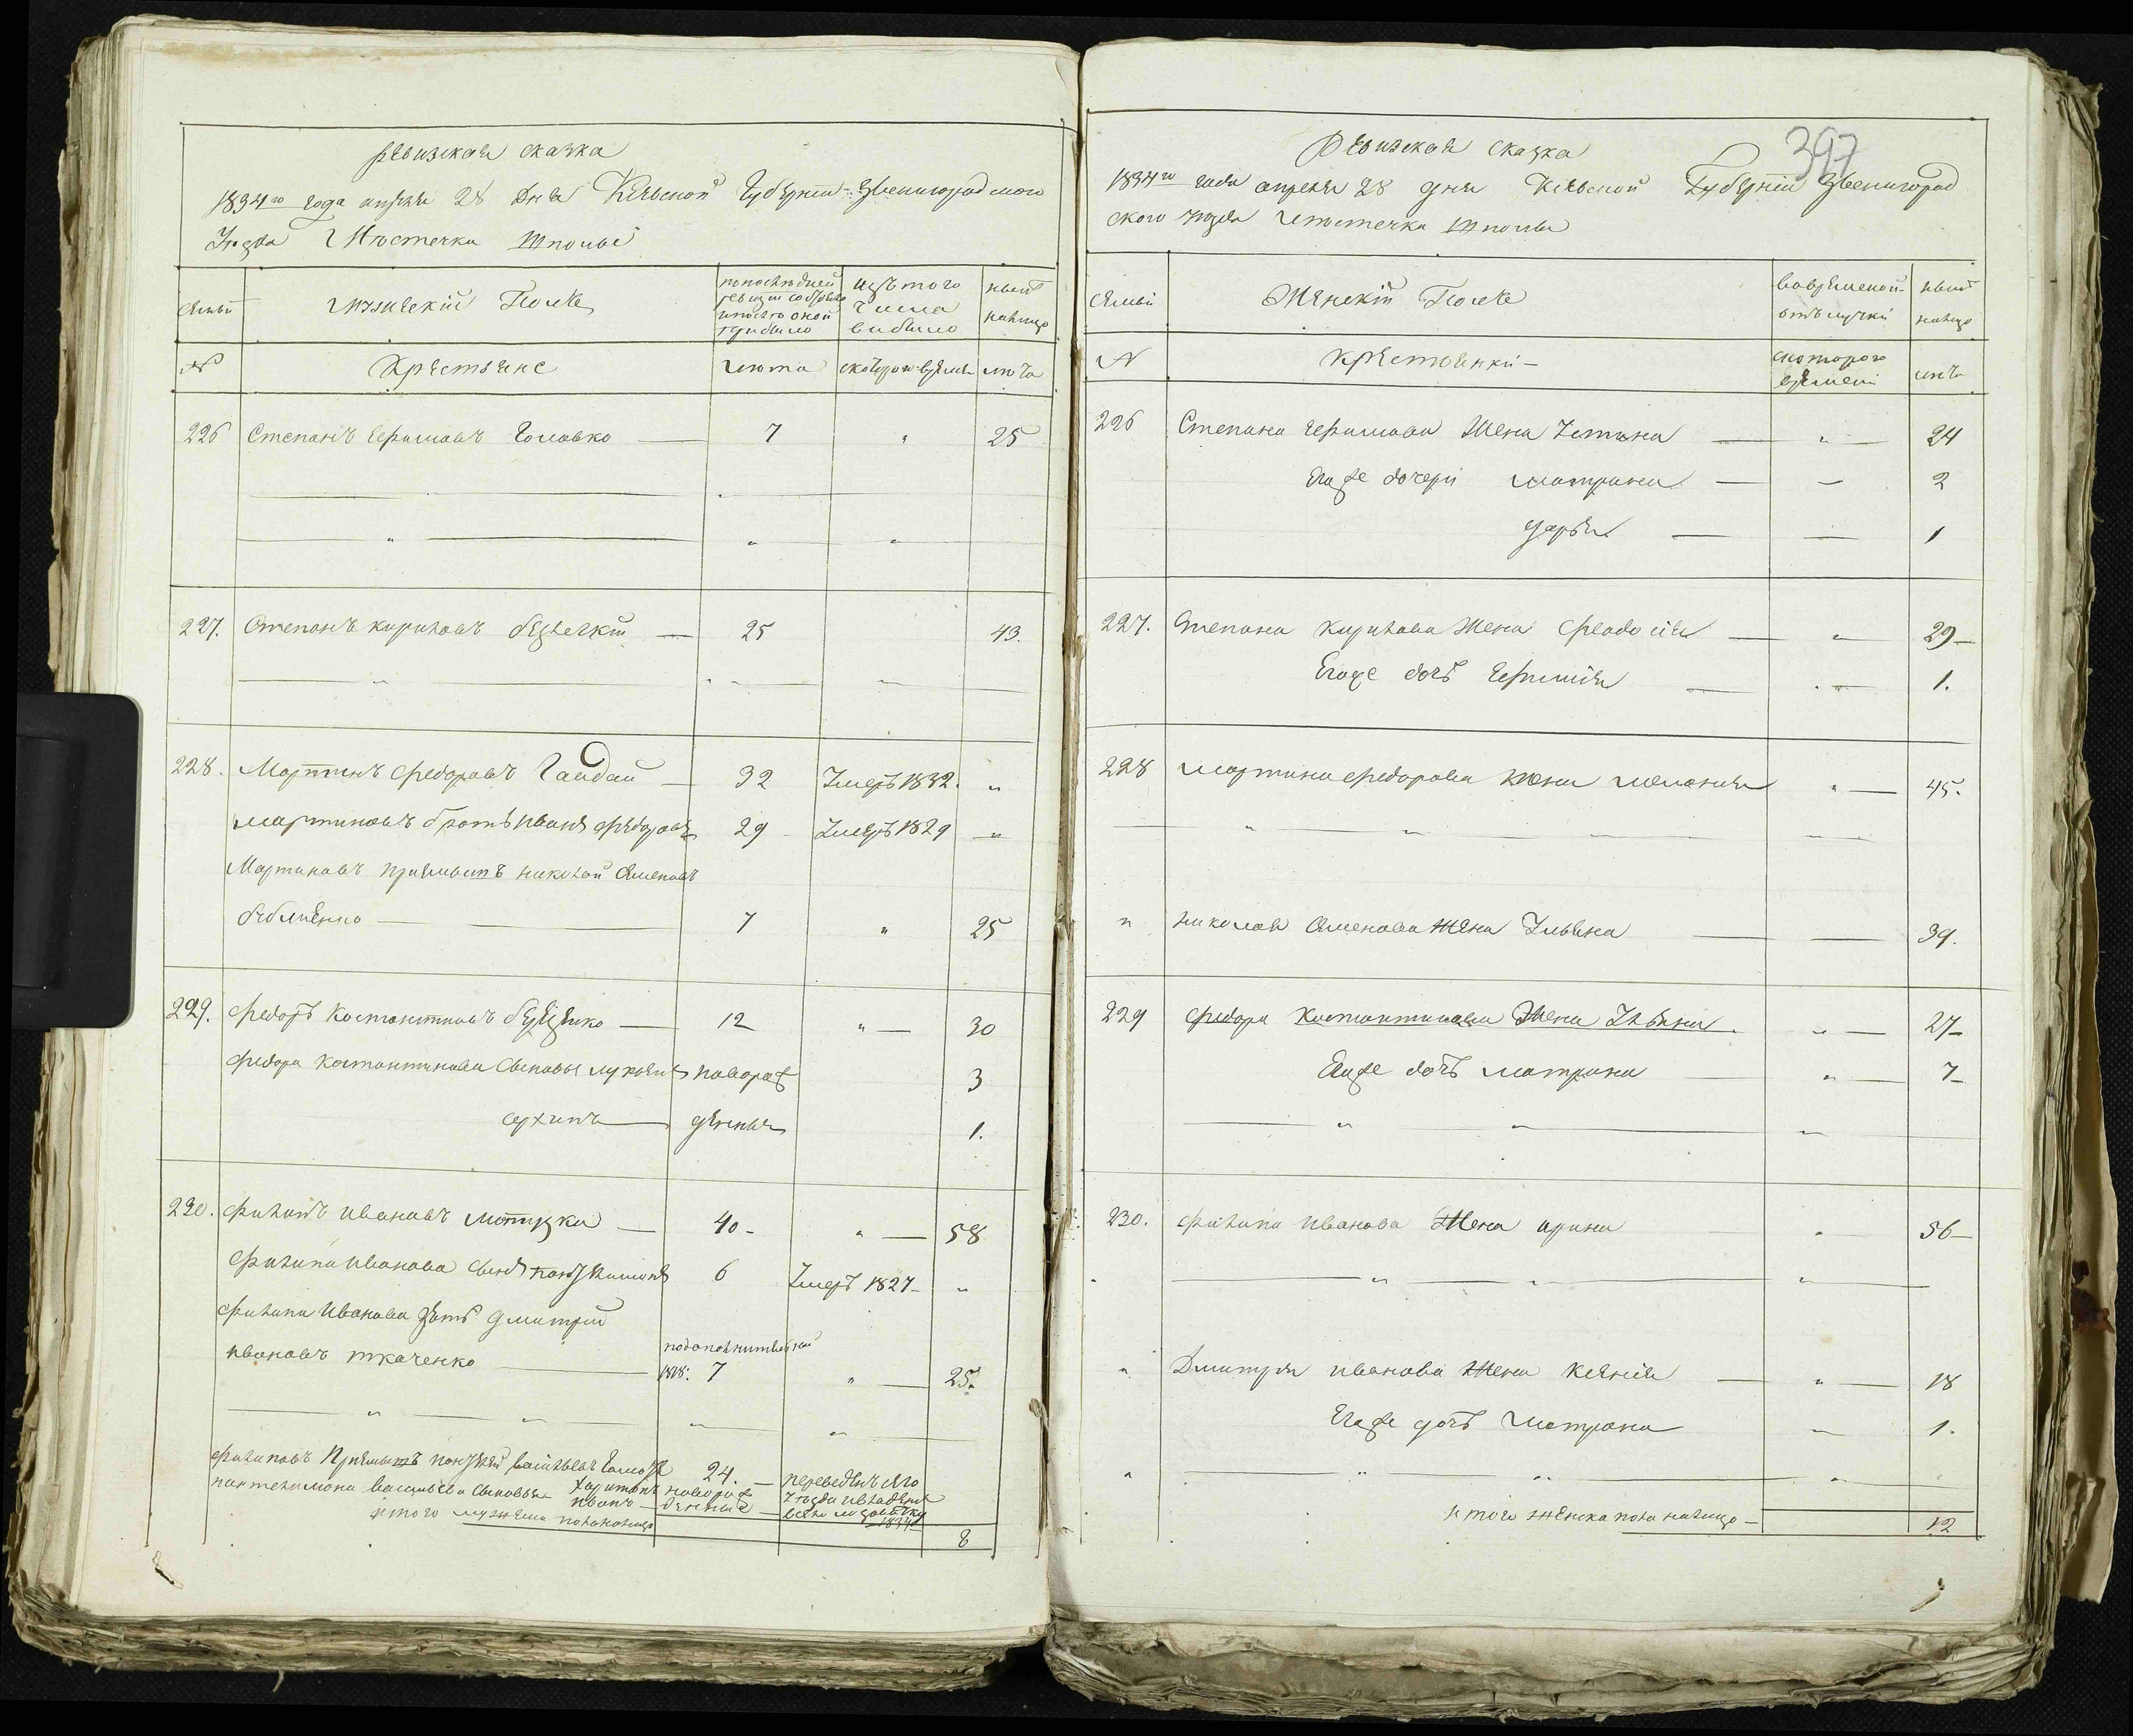 Ревизская сказка
1834го года апреля 28 дня Киевской Губернии Звенигородского
Уезда Местечка Шполы
Семьи
Мужеский Полъ
по последней ревизии состояло и после оной прибыло
изъ того числа выбыло
ныне налицо
№
Крестьяне
лета
скоторого времени
лета
226 Степанъ Ефимовъ Головко — 7 " 25
227. Степанъ Кириловъ — 25 43.
228. Мартинъ Федоровъ Гайдай — 32 Умеръ 1832. "
Мартиновъ братъ Иванъ Федоровъ 29 - Умеръ 1829 "
Мартиновъ приймитъ Николай Семеновъ
— 7 " 25
229. Федоръ Костантиновъ — 12 " — 30
Федора Костантинова Сыновья новорож 3
Архипъ — денные 1.
230. Филипъ Ивановъ Мотузка — 40 - " — 58
Филипа Иванова Сынъ 6 Умеръ 1827 - "
Филипа Иванова зять Дмитрий
Ивановъ Ткаченко — по дополнительной 1818: 7 " — 25.
Филиповъ Приймитъ Васильевъ 24. — переведенъ
Пантелимона Васильева Сыновья Харитонъ новорож
Иванъ — денные — 1834
итого мужеска пола налицо 8
397
Ревизская Сказка
1834го года апреля 28 дня Киевской Губернии Звенигород
ского уезда местечка Шполы
Семьи
Женский Полъ
во временной отлучки
ныне налицо
N
Крестьянки —
скоторого времени
лета
226 Степана Ефимова Жена Устина — " — 24
Егоже дочери Матрона — — 2
Дарья — — 1
227. Степана Кирилова Жена Феодосия — " — 29 —
Егоже дочь Ефимия — . — 1.
228 Мартина Федорова жена Мелания " — 45.
" Николая Семенова Жена Ульяна — — 39.
229 Федора Костантинова Жена Ульяна . " — 27 —
Егоже дочь Матрона — " — 7 —
230. Филипа Иванова Жена Арина " 56 —
" Дмитрия Иванова Жена Ксения — " — 18
Егоже дочь Матрона — 1.
итого женска пола налицо — 12